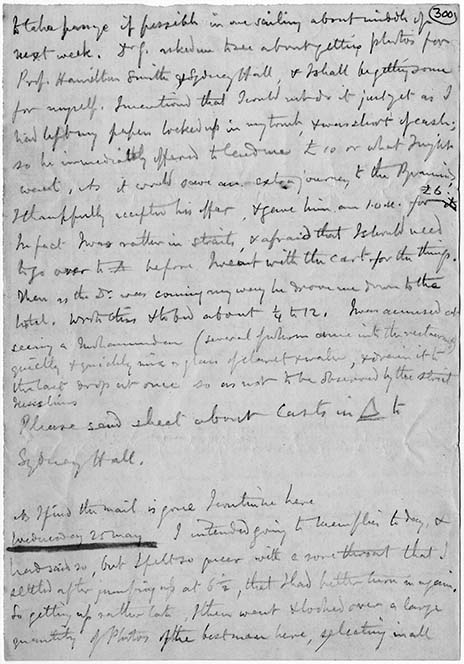 300
to take passage if possible in one sailing about middle of
next week. Dr G. asked me to see about getting photos for
Prof. Hamilton Smith & Sydney Hall, & I shall be getting some
for myself. I mentioned that I could not do it just yet as I
had left my paper locked up in my tomb & was short of cash;
so he immediately offered to lend me £10 or what I might
want, As it would save an extra journey to the Pyramids
I thankfully accepted his offer, & gave him an I.O.U. for
£6!
In fact I was rather in straits, & afraid that I should need
to go over to Δ before I went with the cart for the things.
Then as the Dr. was coming my way he drove me down to the
hotel. Wrote this & to bed about ¼ to 12. I was amused at
seeing a Mohammedan (several of whom came into the restaurant
quickly & quickly mix a glass of claret & water, & drain it to
the last drop at once so as not to be observed by the street
Muslims
Please send sheet about Casts in Δ to
Sydney Hall.
As I find the mail is gone I continue here
Wednesday 25 May I intended going to Memphis to day, &
had said so, but I felt so queer with a sore throat that I
settled after jumping up at 6½, that I had better turn in again.
So getting up rather late, I then went & looked over a large
quantity of Photos of the best man here, selecting in all